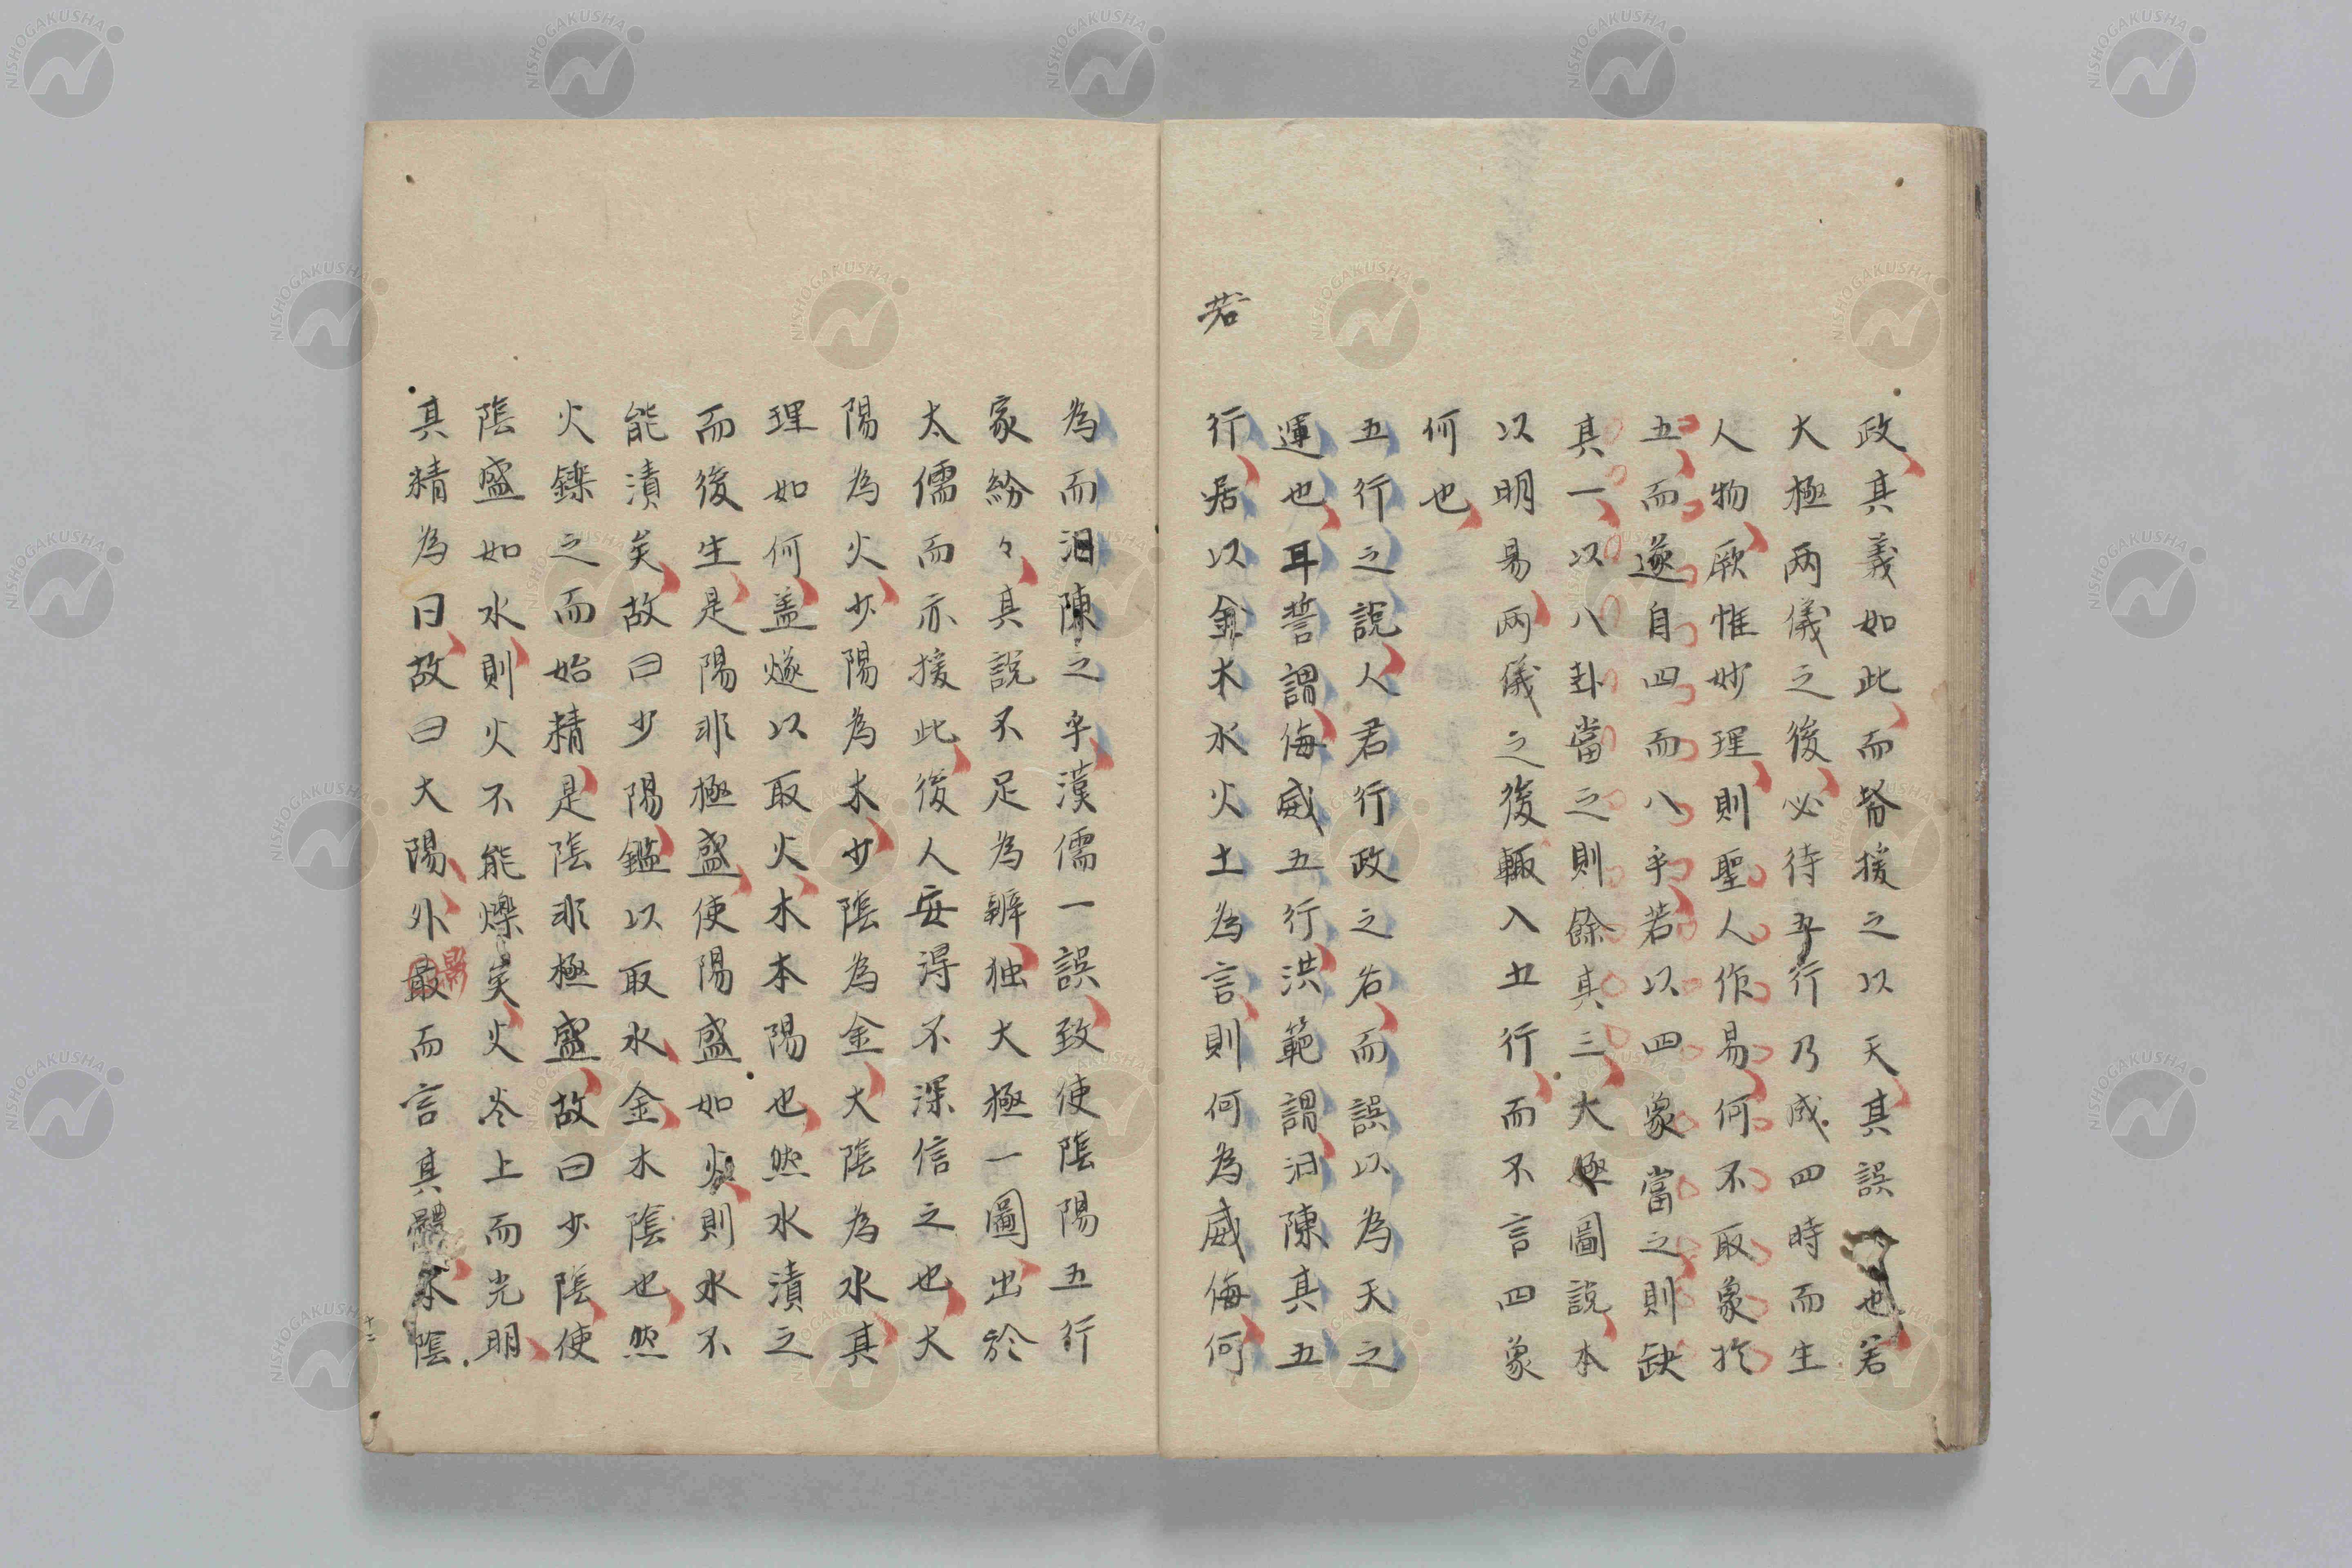 政其義如此而皆援之以天其誤也若
大極两儀之後必待五行乃成四時而生
人物厥惟妙理則聖人作易何不取象於
五而遂自四而八乎若以四象當之則缺
其一以八卦當之則餘其三大極圖說本
以明易两儀之後輙入五行而不言四象
何也
五行之說人君行政之名而誤以為天之
運也耳誓謂侮威五行洪範謂汩陳其五
若
行居以金木水火土為言則何為威侮何
為而汩陳之乎漢儒一誤致使陰陽五行
家紛々其說不足為辨独大極一圖出於
太儒而亦援此後人安得不深信之也大
陽為火少陽為木少陰為金大陰為水其
理如何盖燧以取火木本陽也然水漬之
而後生是陽非極盛使陽盛如火則水不
能漬矣故曰少陽鑑以取水金木陰也然
火鑠之而始精是陰非極盛故曰少陰使
陰盛如水則火不能爍矣火炎上而光明
其精為日故曰大陽外影而言其體水陰
十二
NISHOGAKUSHA